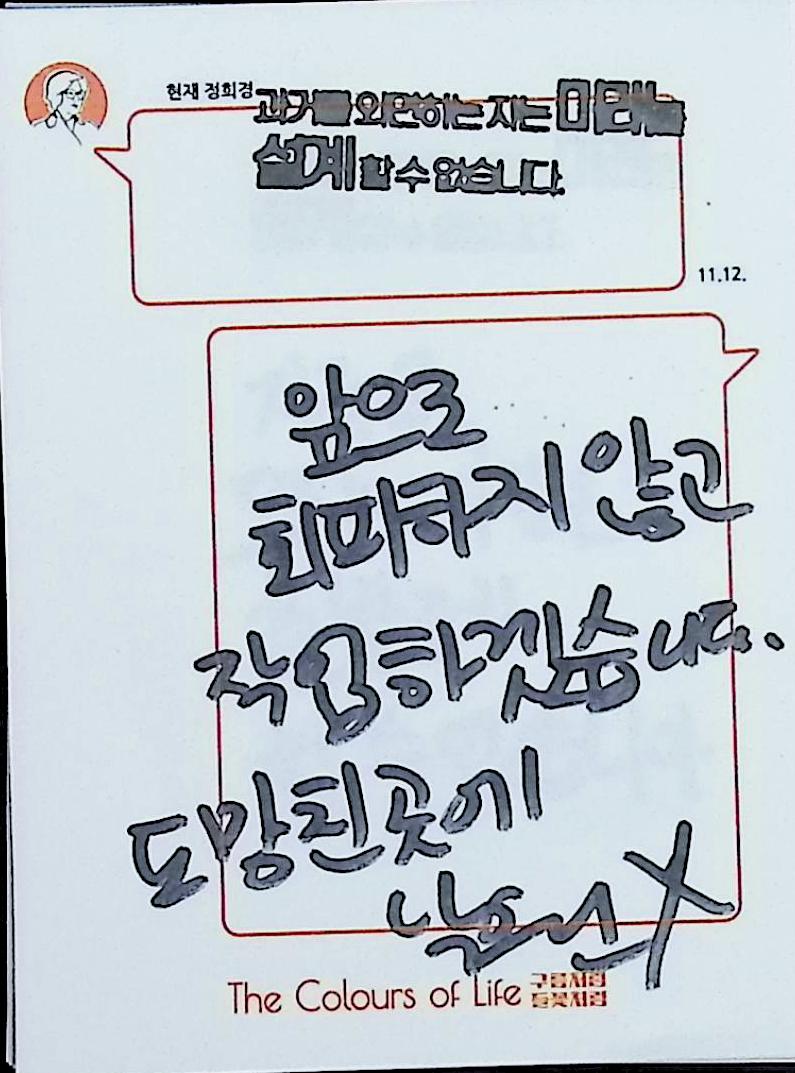 현재 정희경
과거를 외면하는 자는 미래를
설계할 수 없습니다.
11.12.
앞으로
회피하지 않고
작업하겠습니다.
도망친 곳에
낙원은 X
The Colours of Life
구름처럼
들꽃처럼